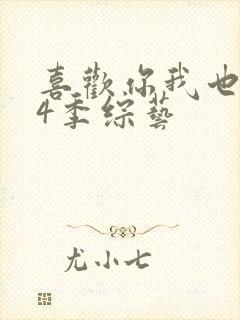 喜歡你我也
4季綜藝
尤小七